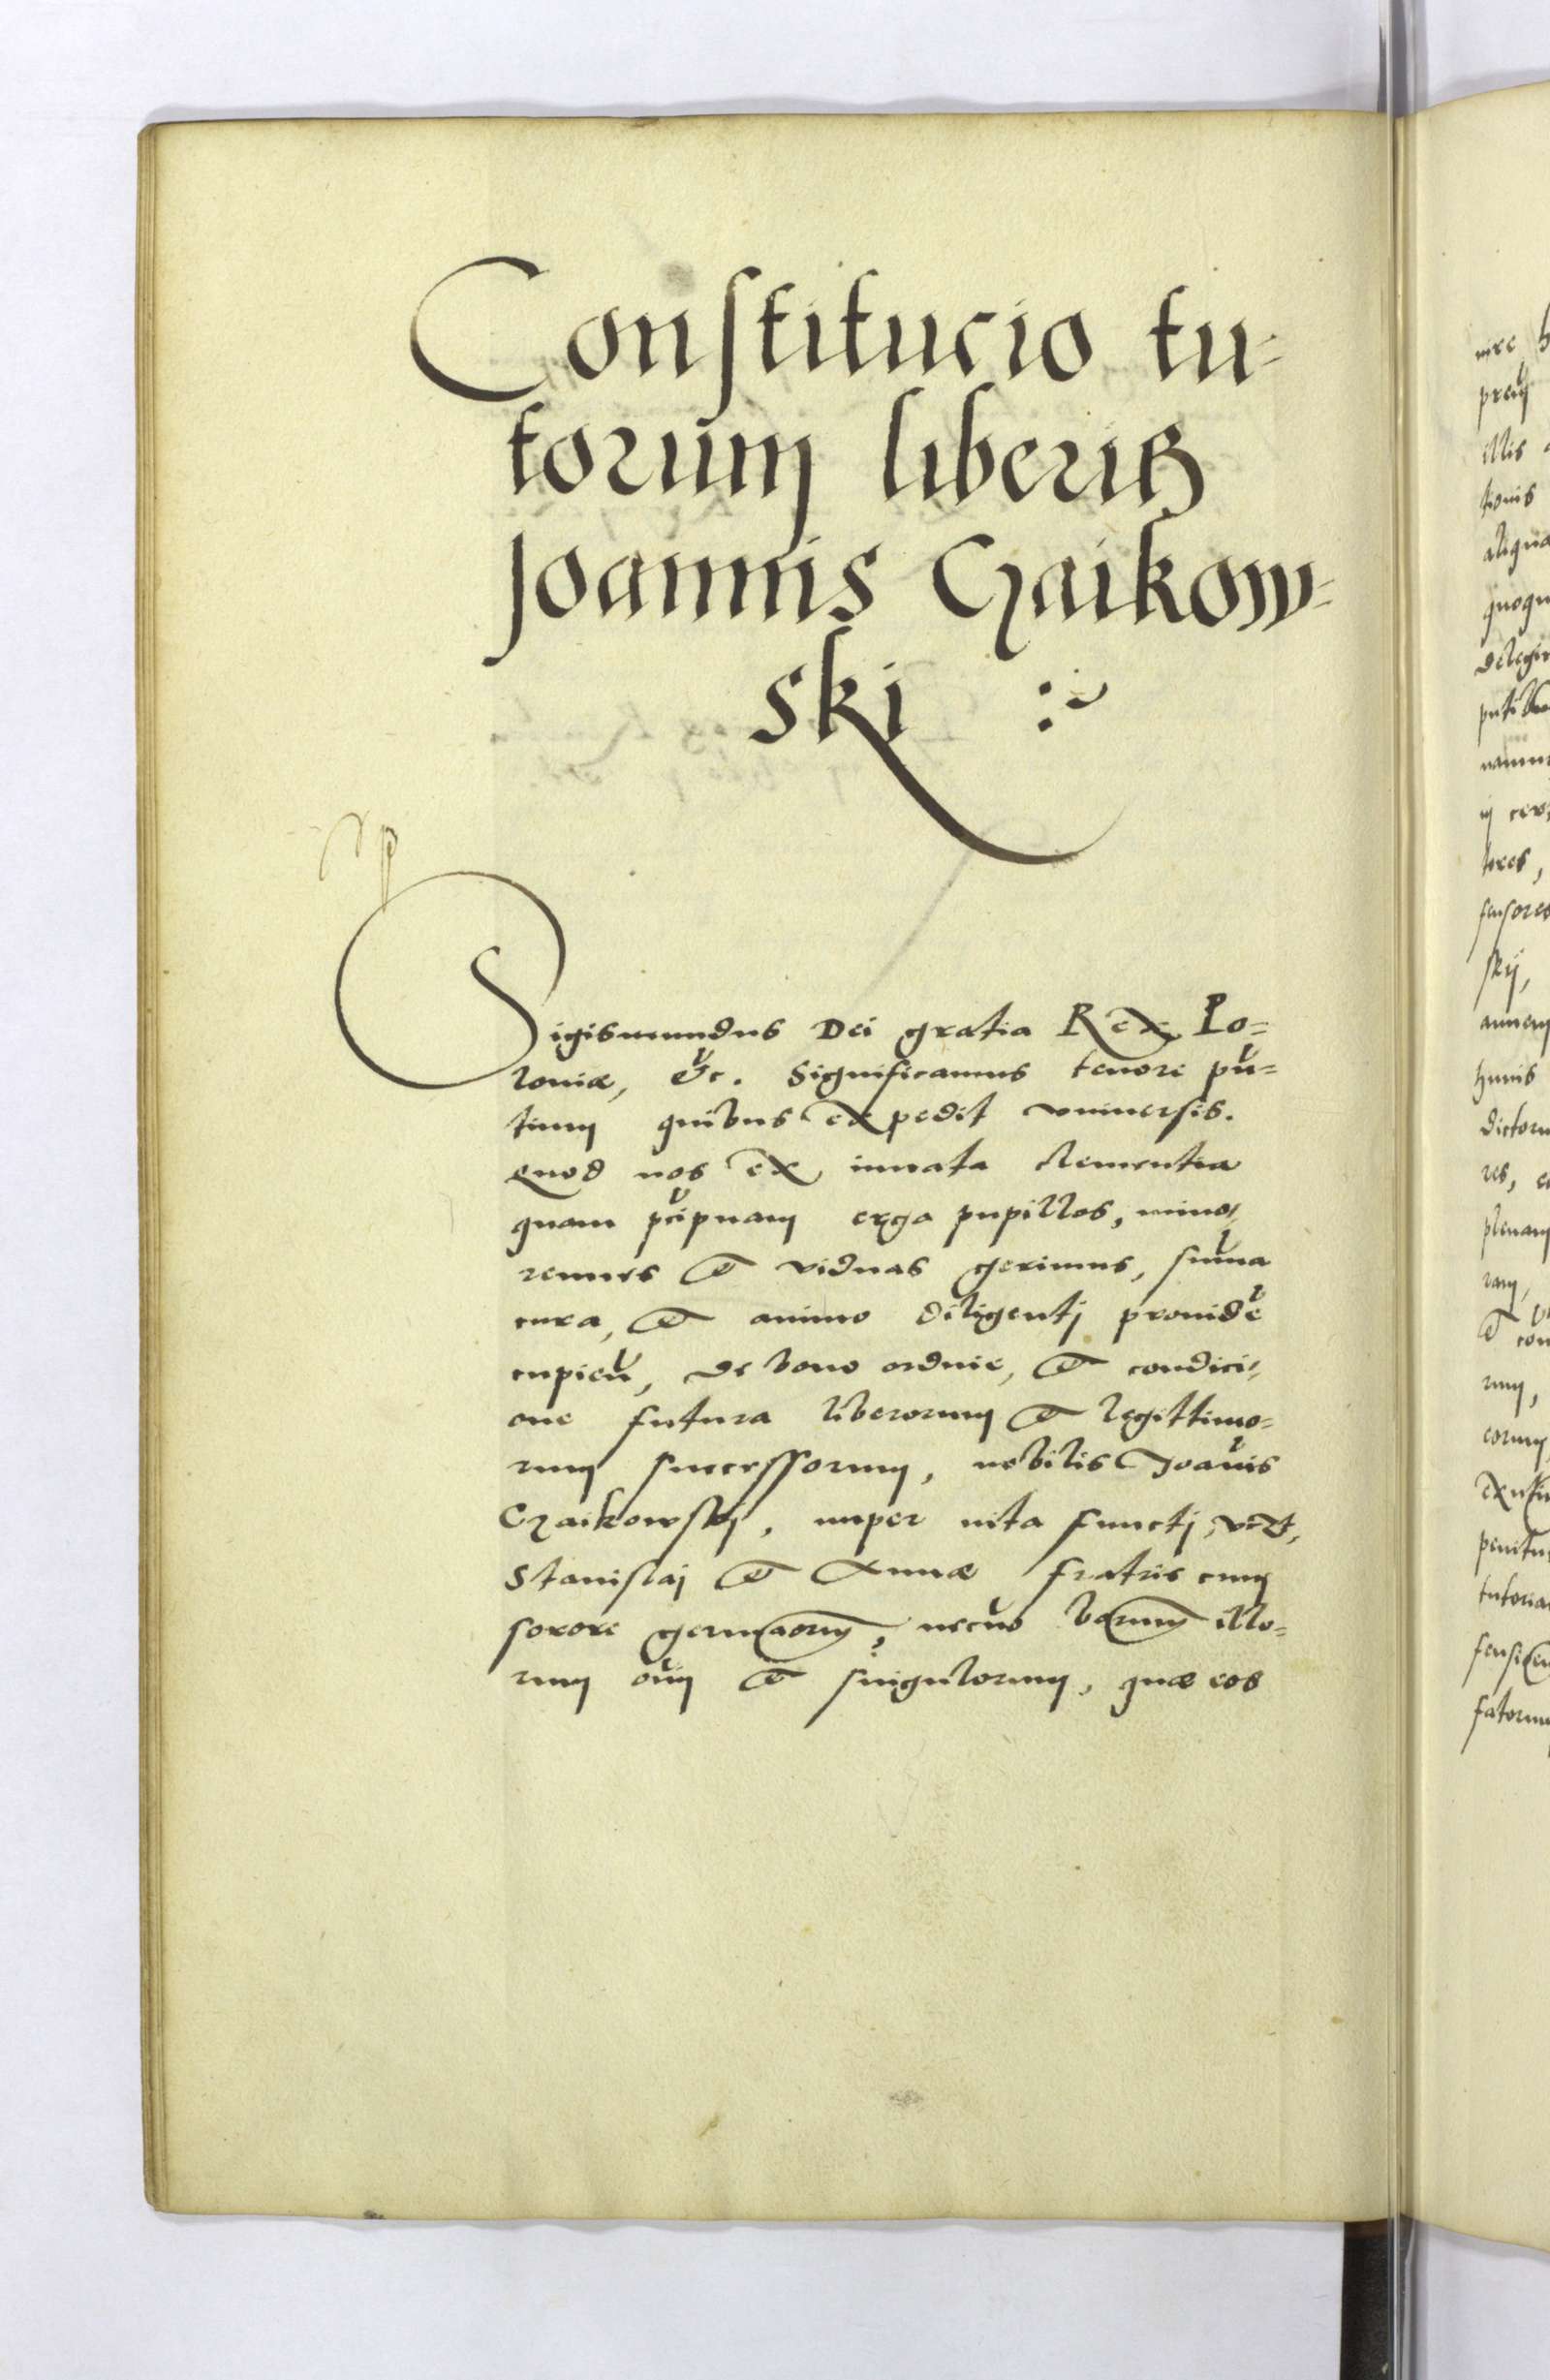 Constitucio tu-
torum liberis
Joannis Czaikow-
ski
Sigismundus Dei gratia Rex Po=
loniæ, &c. Significamus tenore pn̄=
tium quibus expedit vniuersis.
Quod nos ex innata clementia
quam p̄cipuam erga pupillos, mino/
rennes et viduas gerimus, sum̄a
cura, et animo diligentj prouidē
cupien̄, de bono ordine, et condici/
one futura liberorum et legittimo=
rum successorum, nobilis Joan̄is
Czaikowskj, nuper vita functj, vcz,
Stanislaj et Annæ fratris cum
sorore germaorum, necno bonorum illo=
rum om̄ et singulorum, quæ eos